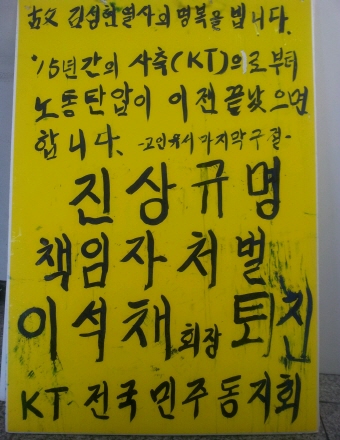 古文 김성현열사의 명복을 빕니다.
"15년간의 사측(KT)의로부터
노동탄압이 이젠 끝났으면
합니다. -고인유서 마지막구절-
진상규명
책임자처벌
이석채 회장 퇴진
KT 전국민주동지회